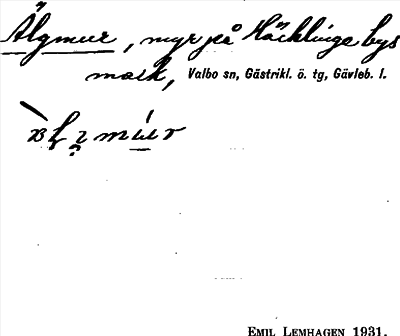 Älgmur, myr på Häcklinge bys
mark, Valbo sn, Gästrikl. ö. tg, Gävleb. l.
EMIL LEMHAGEN 1931.